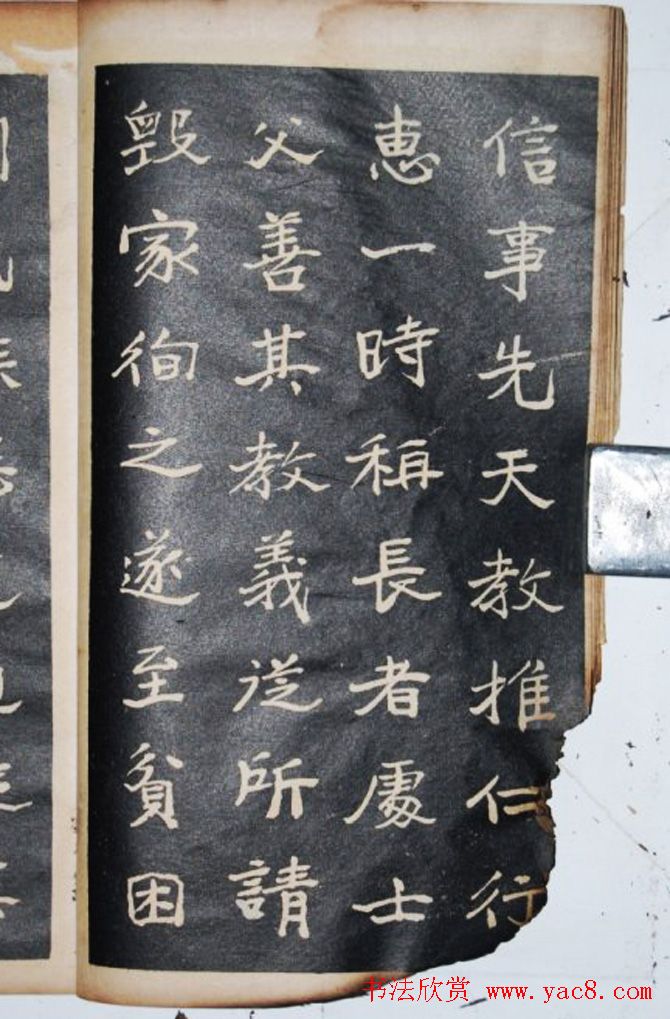 信事先天教推仁行
恵一時稱長者處士
父善其教義従所請
毀家徇之遂至貧困
书法欣赏 www.yac8.com